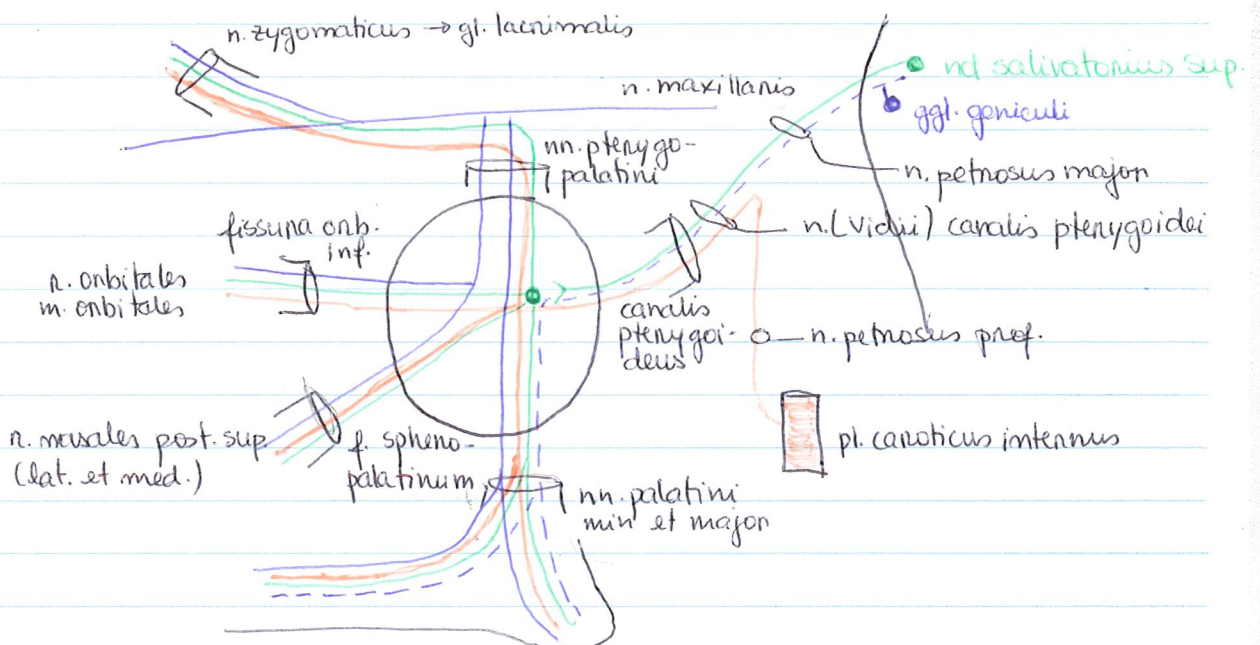 n. zygomaticus → gl. lacrimalis
n. maxillaris
ncl salivatorius sup.
ggl. geniculi
nn. pterygo-
palatini
n. petrosus major
n. (Vidii) canalis pterygoidei
fissura orb.
inf.
r. orbitales
m. orbitales
canalis
pterygoi-
deus
n. petrosus prof.
r. nasales post. sup.
(lat. et med.)
f. spheno-
palatinum
pl. caroticus internus
nn. palatini
min et major